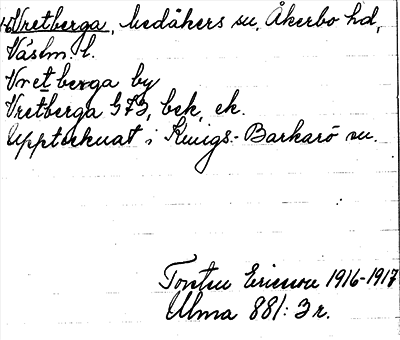 Vretberga, Medåkers sn, Åkerbo hd,
Västm. l.
Vretberga by
Vretberga G F B, bek, ek.
Upptecknat i Kungs-Barkarö sn.
Torsten Ericsson 1916-1917
Ulma 881: 3 r.